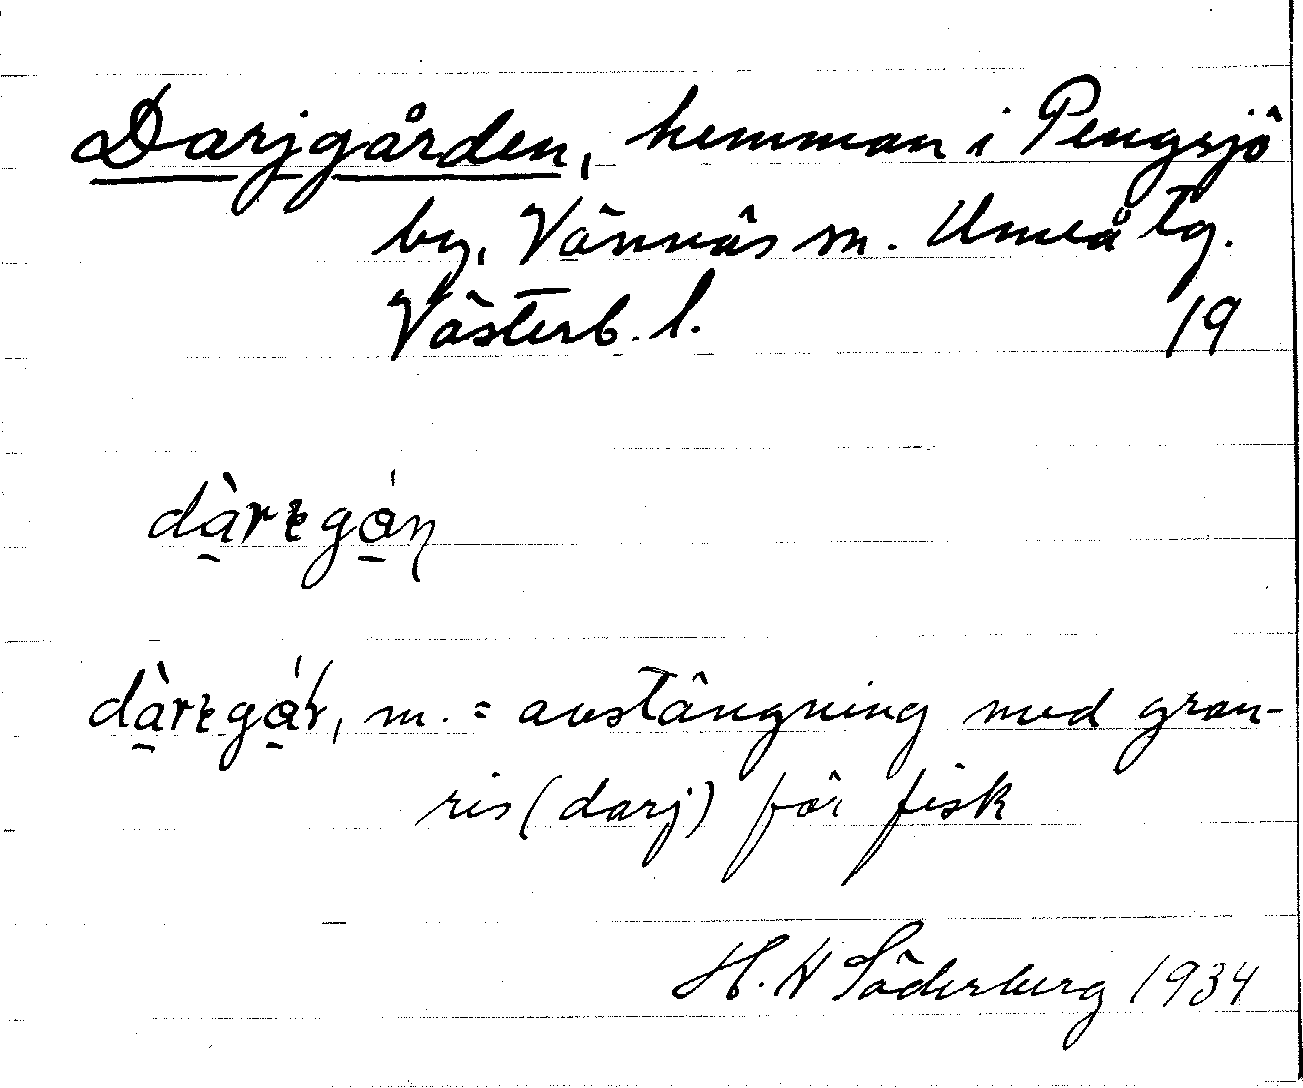 Darjgården, hemman i Pengsjö
by, Vännäs sn. Umeå tg.
Västerb. l. 19
dàrɛgán
dàrɛgár, m. = avstängning med gran-
ris (darj) för fisk
H. H Söderberg 1934